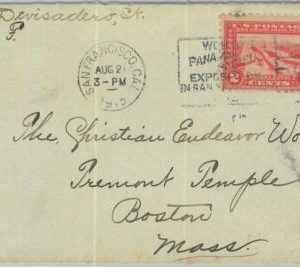 Devisadero, St.
F.
SAN FRANCISCO, CAL.
AUG 2
3-PM
WO
PANA
EXPOSI
IN SAN
U.S. POSTAG
2 CENTS
The, Christian Endeavor Wo
Tremont Temple
Boston
Mass.